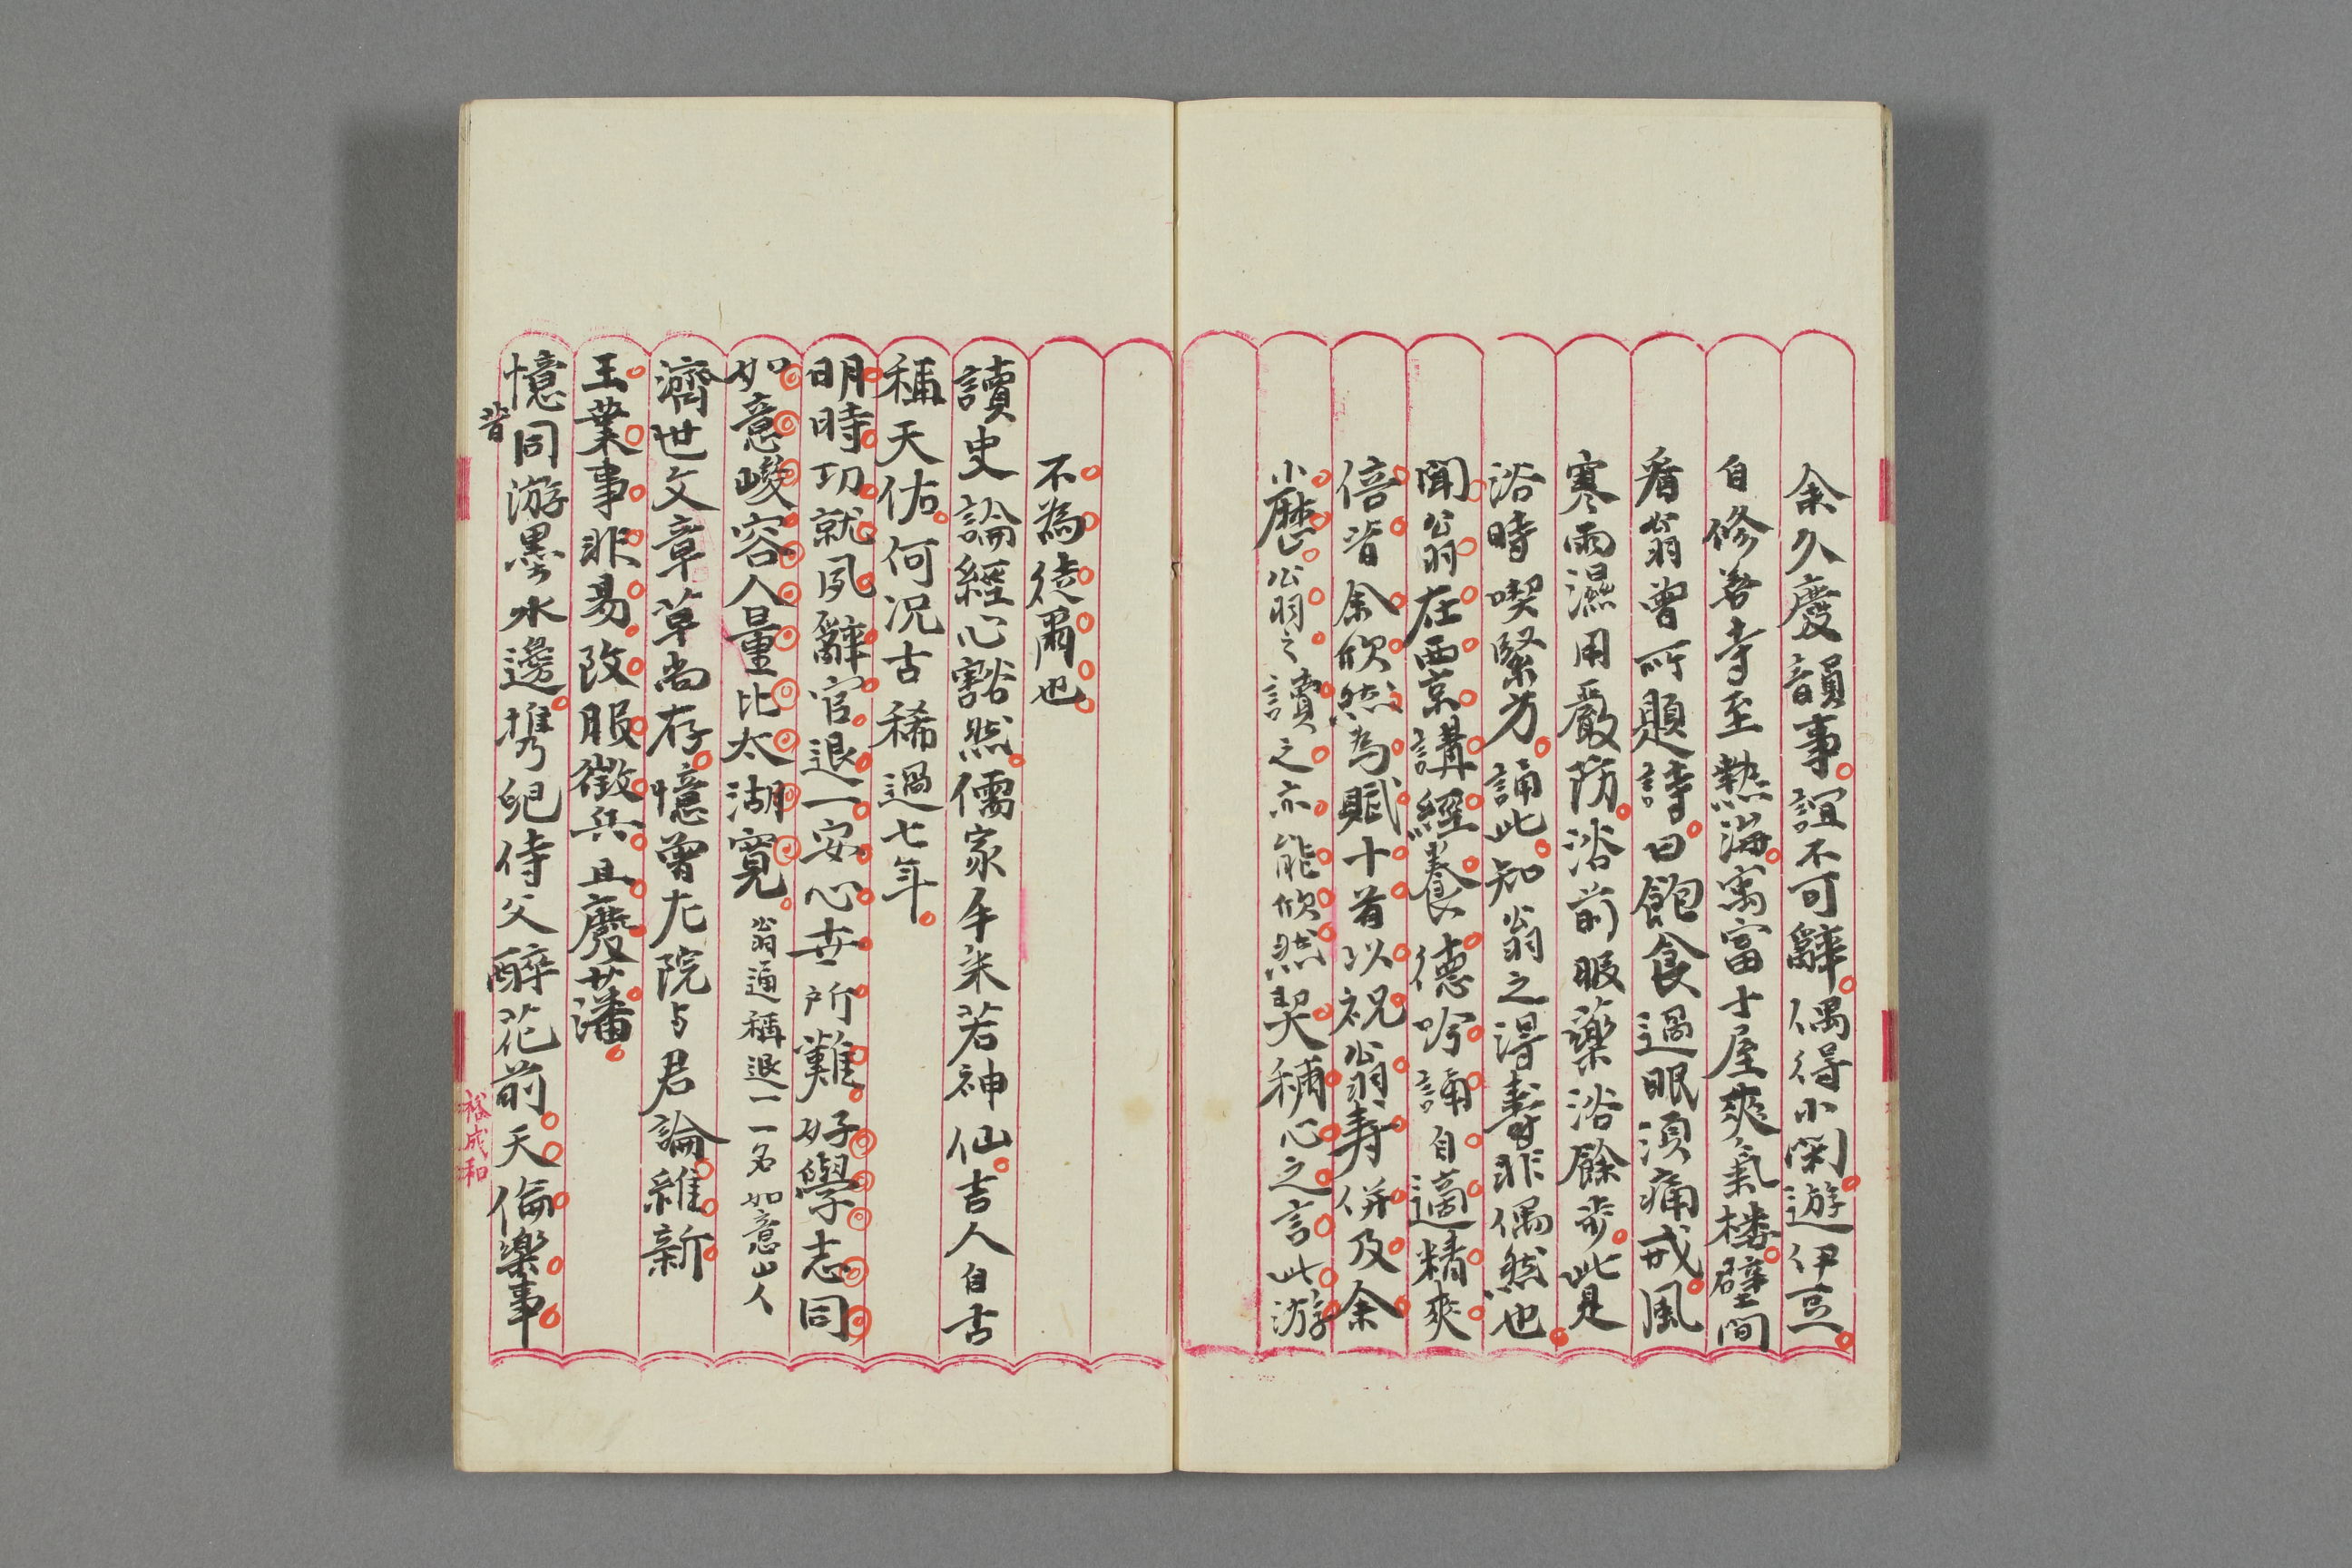 余久廢韻事誼不可辭偶得小閑遊伊豆
自修善寺至熱海寓富士屋爽氣楼壁間
看翁曽所題詩曰飽食過眠須痛戒風
寒雨濕用嚴防浴前服藥浴餘步此是
浴時喫緊方誦此知翁之得壽非偶然也
聞翁在西京講經養德吟誦自適精爽
倍皆余欣然為賦十首以祝翁寿併及余
小歷翁之讀之亦能欣然契稱心之言此游
不為徒爾也
讀史論經心豁然儒家年来若神仙吉人自古
稱天佑何況古稀過七年
明時功就夙辭官退一安心世所難好學志同
如意峻容人量比太湖寬 翁通稱退一一名如意山人
濟世文章草尚存憶曽左院与君論維新
王業事非易改服徴兵且廢藩
憶昔同游墨水邊携兒侍父醉花前天倫樂事
裕成和